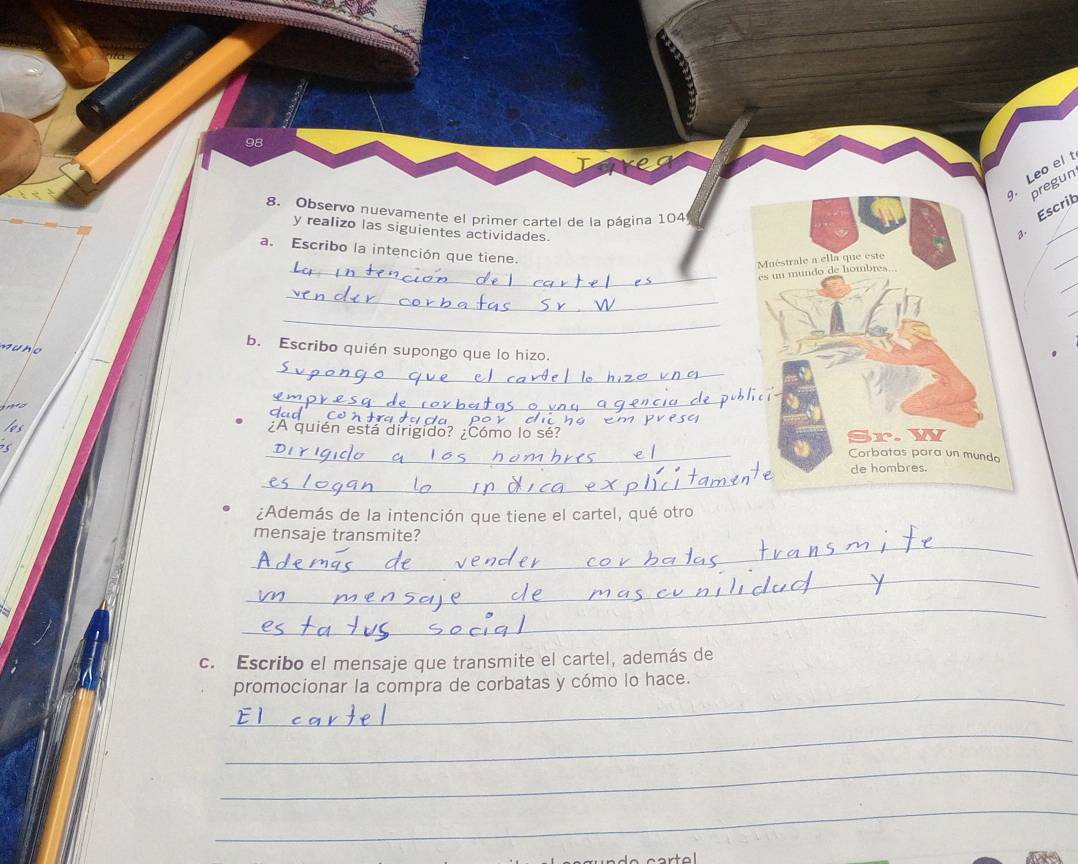 98
Tarea
8. Observo nuevamente el primer cartel de la página 104
y realizo las siguientes actividades.
a. Escribo la intención que tiene.
La intención del cartel es
vender corbatas Sr. W
b. Escribo quién supongo que lo hizo.
Supongo que el cartel lo hizo una
empresa de corbatas o una agencia de publici-
dad contratada por dicha empresa
• ¿A quién está dirigido? ¿Cómo lo sé?
Dirigido a los hombres el
eslogan lo indica explícitamente
• ¿Además de la intención que tiene el cartel, qué otro
mensaje transmite?
Además de vender corbatas transmite
un mensaje de mascunilidad y
estatus social
c. Escribo el mensaje que transmite el cartel, además de
promocionar la compra de corbatas y cómo lo hace.
El cartel
Muéstrale a ella que este
es un mundo de hombres...
Sr. W
Corbatas para un mundo
de hombres.
9. Leo el
pregun
a. Escrib
muno
les
cartel